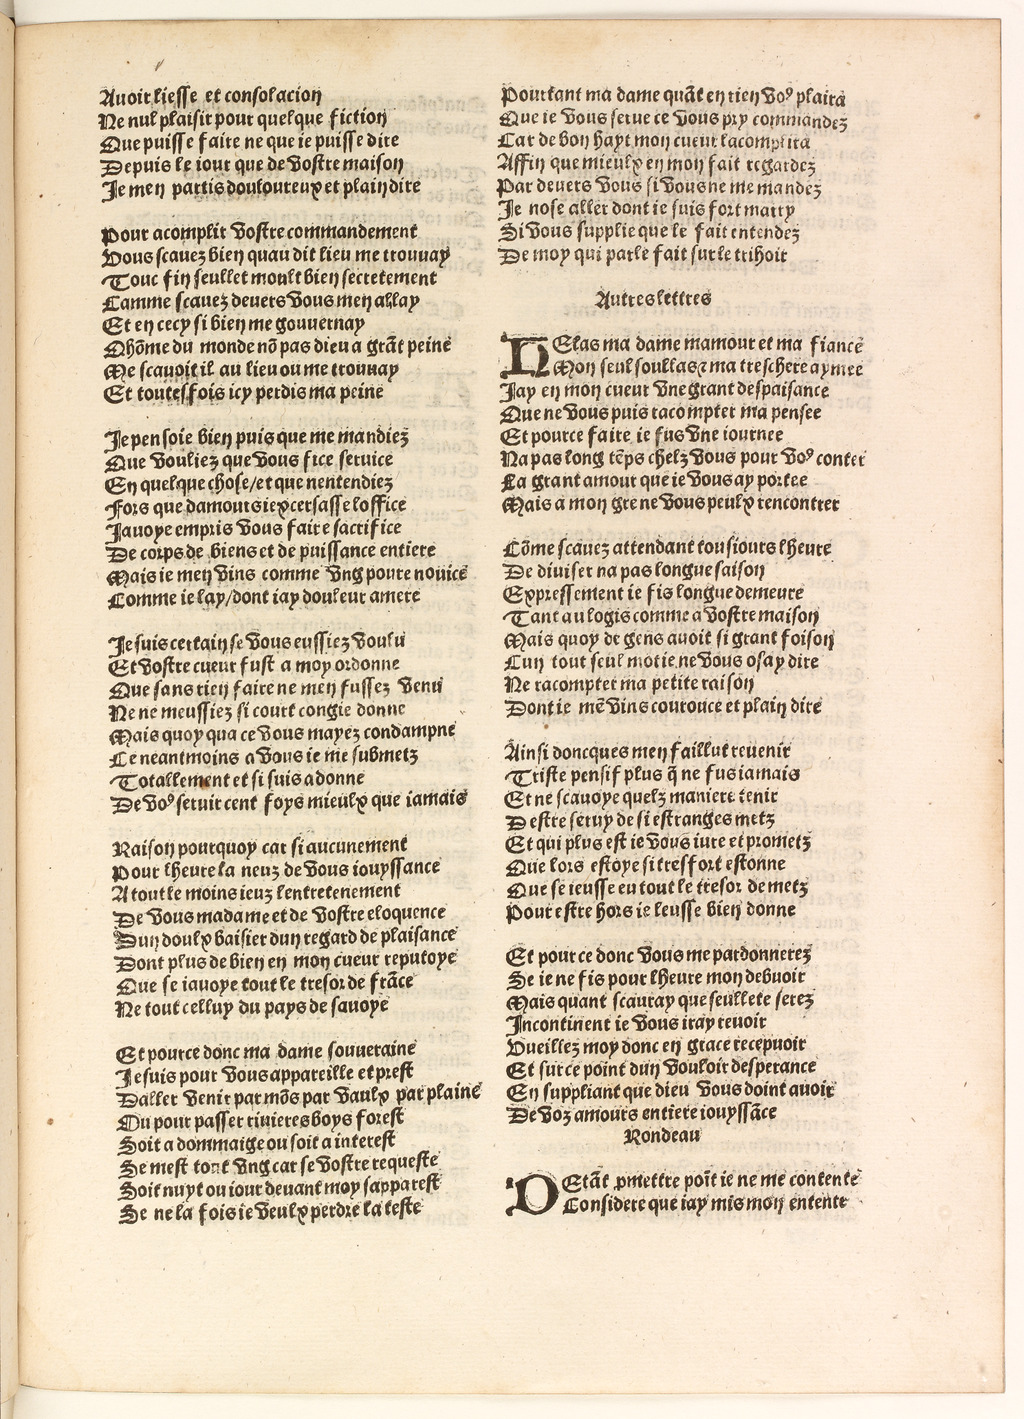 Auoir liesse et consolacion
Ne nul plaisir pour quelque fiction
Que puisse faire ne que ie puisse dire
Depuis le iour que de vostre maison
Je men partis douloureux et plain dire
Pour acomplir vostre commandement
Vous scauez bien quau dit lieu me trouuay
Touc fin seullet moult bien secretement
Camme scauez deuers vous men allay
Et en cecy si bien me gouuernay
Qhōme du monde nō pas dieu a grāt peine
Me scauoit il au lieu ou me trouuay
Et toutesfois icy perdis ma peine
Je pensoie bien puis que me mandiez
Que vouliez que vous fice seruice
En quelque chose/et que nentendiez
Fors que damours iexcersasse loffice
Jauoye empris vous faire sacrifice
De corps de biens et de puissance entiere
Mais ie men vins comme vng poure nouice
Comme ie lay/dont iay douleur amere
Je suis certain se vous eussiez voulu
Et vostre cueur fust a moy ordonne
Que sans rien faire ne men fussez venu
Ne ne meussiez si court congie donne
Mais quoy qua ce vous mayez condampne
Ce neantmoins a vous ie me submetz
Totallement et si suis adonne
De voꝰ seruir cent foys mieulx que iamais
Raison pourquoy car si aucunement
Pour lheure la neuz de vous iouyssance
A tout le moins ieuz lentretenement
De vous madame et de vostre eloquence
Dun doulx baisier dun regard de plaisance
Dont plus de bien en mon cueur reputoye
Que se iauoye tout le tresor de frāce
Ne tout celluy du pays de sauoye
Et pource donc ma dame souueraine
Je suis pour vous appareille et prest
Daller venir par mōs par vaulx par plaine
Ou pour passer riuieres boys forest
Soit a dommaige ou soit a interest
Se mest tout vng car se vostre requeste
Soit nuyt ou iour deuant moy sapparest
Se ne la fois ie veulx perdre la teste
Pourtant ma dame quāt en rien voꝰ plaira
Que ie vous serue ce vous pry commandez
Car de bon hayt mon cueur lacomplira
Affin que mieulx en mon fait regardez
Par deuers vous si vous ne me mandez
Je nose aller dont ie suis fort marry
Si vous supplie que le fait entendez
De moy qui parle fait sur le trihoir
Autres lettres
HElas ma dame mamour et ma fiance
Mon seul soullas ⁊ ma treschere aymee
Jay en mon cueur vne grant despaisance
Que ne vous puis racompter ma pensee
Et pource faire ie fus vne iournee
Na pas long tēps chelz vous pour voꝰ conter
La grant amour que ie vous ay portee
Mais a mon gre ne vous peulx rencontrer
Cōme scauez attendant tousiours lheure
De diuiser na pas longue saison
Expressement ie fis longue demeure
Tant au logis comme a vostre maison
Mais quoy de gens auoit si grant foison
Cun tout seul mot ie ne vous osay dire
Ne racompter ma petite raison
Dont ie mē vins courouce et plain dire
Ainsi doncques men faillut reuenir
Triste pensif plus q̄ ne fus iamais
Et ne scauoye quelz maniere tenir
Destre seruy de si estranges metz
Et qui plus est ie vous iure et prometz
Que lors estoye si tresfort estonne
Que se ieusse eu tout le tresor de metz
Pour estre hors ie leusse bien donne
Et pource donc vous me pardonnerez
Se ie ne fis pour lheure mon debuoir
Mais quant scauray que seullete serez
Incontinent ie vous iray reuoir
Vueillez moy donc en grace recepuoir
Et sur ce point dun vouloir desperance
En suppliant que dieu vous doint auoir
De voz amours entiere iouyssāce
Rondeau
DEstāt ꝓmettre poīt ie ne me contente
Considere que iay mis mon entente